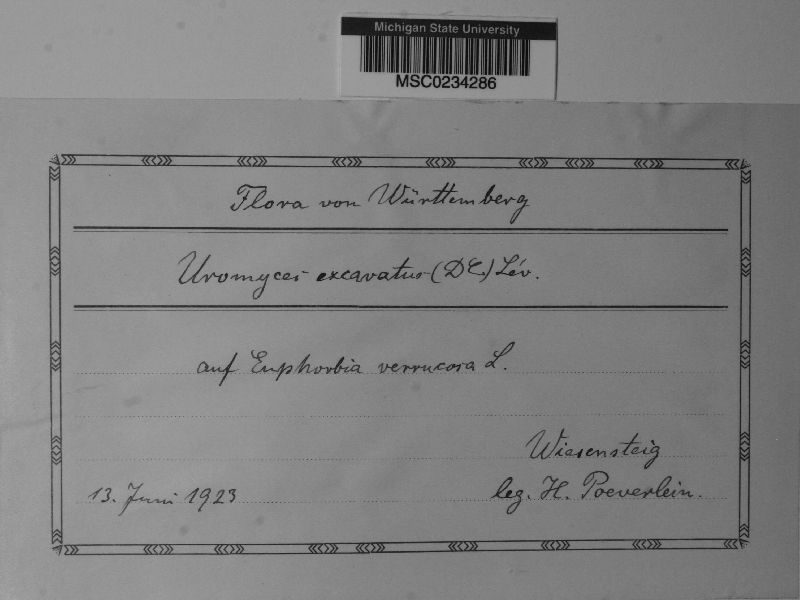 Michigan State University
MSC0234286
Flora von Württemberg
Uromyces excavatus (DC.) Lév.
auf Euphorbia verrucosa L.
Wiesensteig
13. Juni 1923 leg. H. Poeverlein.